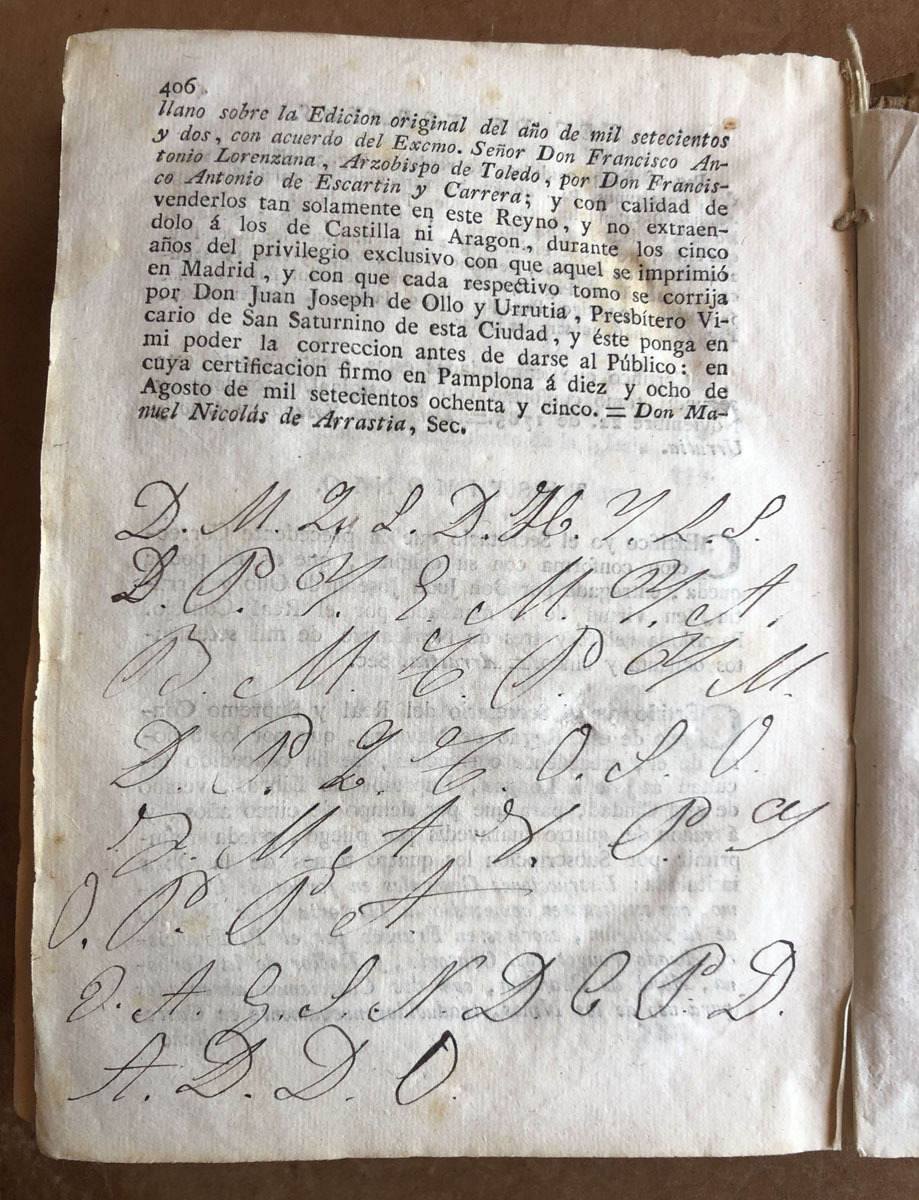 406
llano sobre la Edicion original del año de mil setecientos
y dos, con acuerdo del Excmo. Señor Don Francisco An-
tonio Lorenzana, Arzobispo de Toledo, por Don Francis-
co Antonio de Escartin y Carrera; y con calidad de
venderlos tan solamente en este Reyno, y no extraen-
dolo á los de Castilla ni Aragon., durante los cinco
años del privilegio exclusivo con que aquel se imprimió
en Madrid, y con que cada respectivo tomo se corrija
por Don Juan Joseph de Ollo y Urrutia, Presbítero Vi-
cario de San Saturnino de esta Ciudad, y éste ponga en
mi poder la correccion antes de darse al Público: en
cuya certificacion firmo en Pamplona á diez y ocho de
Agosto de mil setecientos ochenta y cinco. = Don Ma-
nuel Nicolás de Arrastia, Sec.
D. M. S. D. Y. S. S.
D P. Y. E M. Y. A.
B. M. P Y M.
D P. O. S. O.
M. A P.
O. P. P A
O. A S N D C P. D.
A. D. D. O.